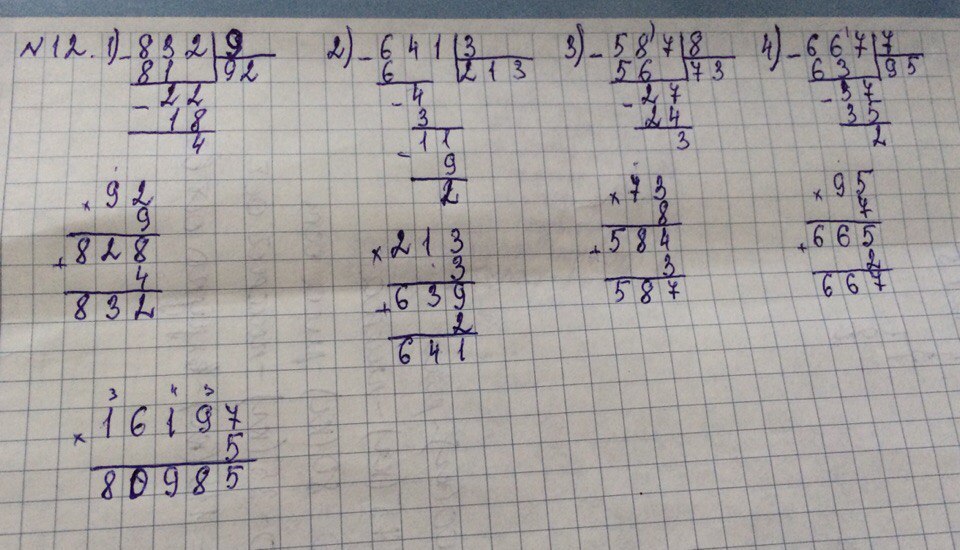 N12. 1) - 832 | 9   2) - 641 | 3   3) - 587 | 8   4) - 667 | 7
81 | 92   6 | 213   56 | 73   63 | 95
- 22   - 4   - 27   - 37
18   3   24   35
4   11   3   2
- 9
2
× 92   × 73   × 95
9   8   7
828   × 213   + 584   + 665
+ 4   3   3   2
832   + 639   587   667
2
641
3 4 3
× 16197
5
80985